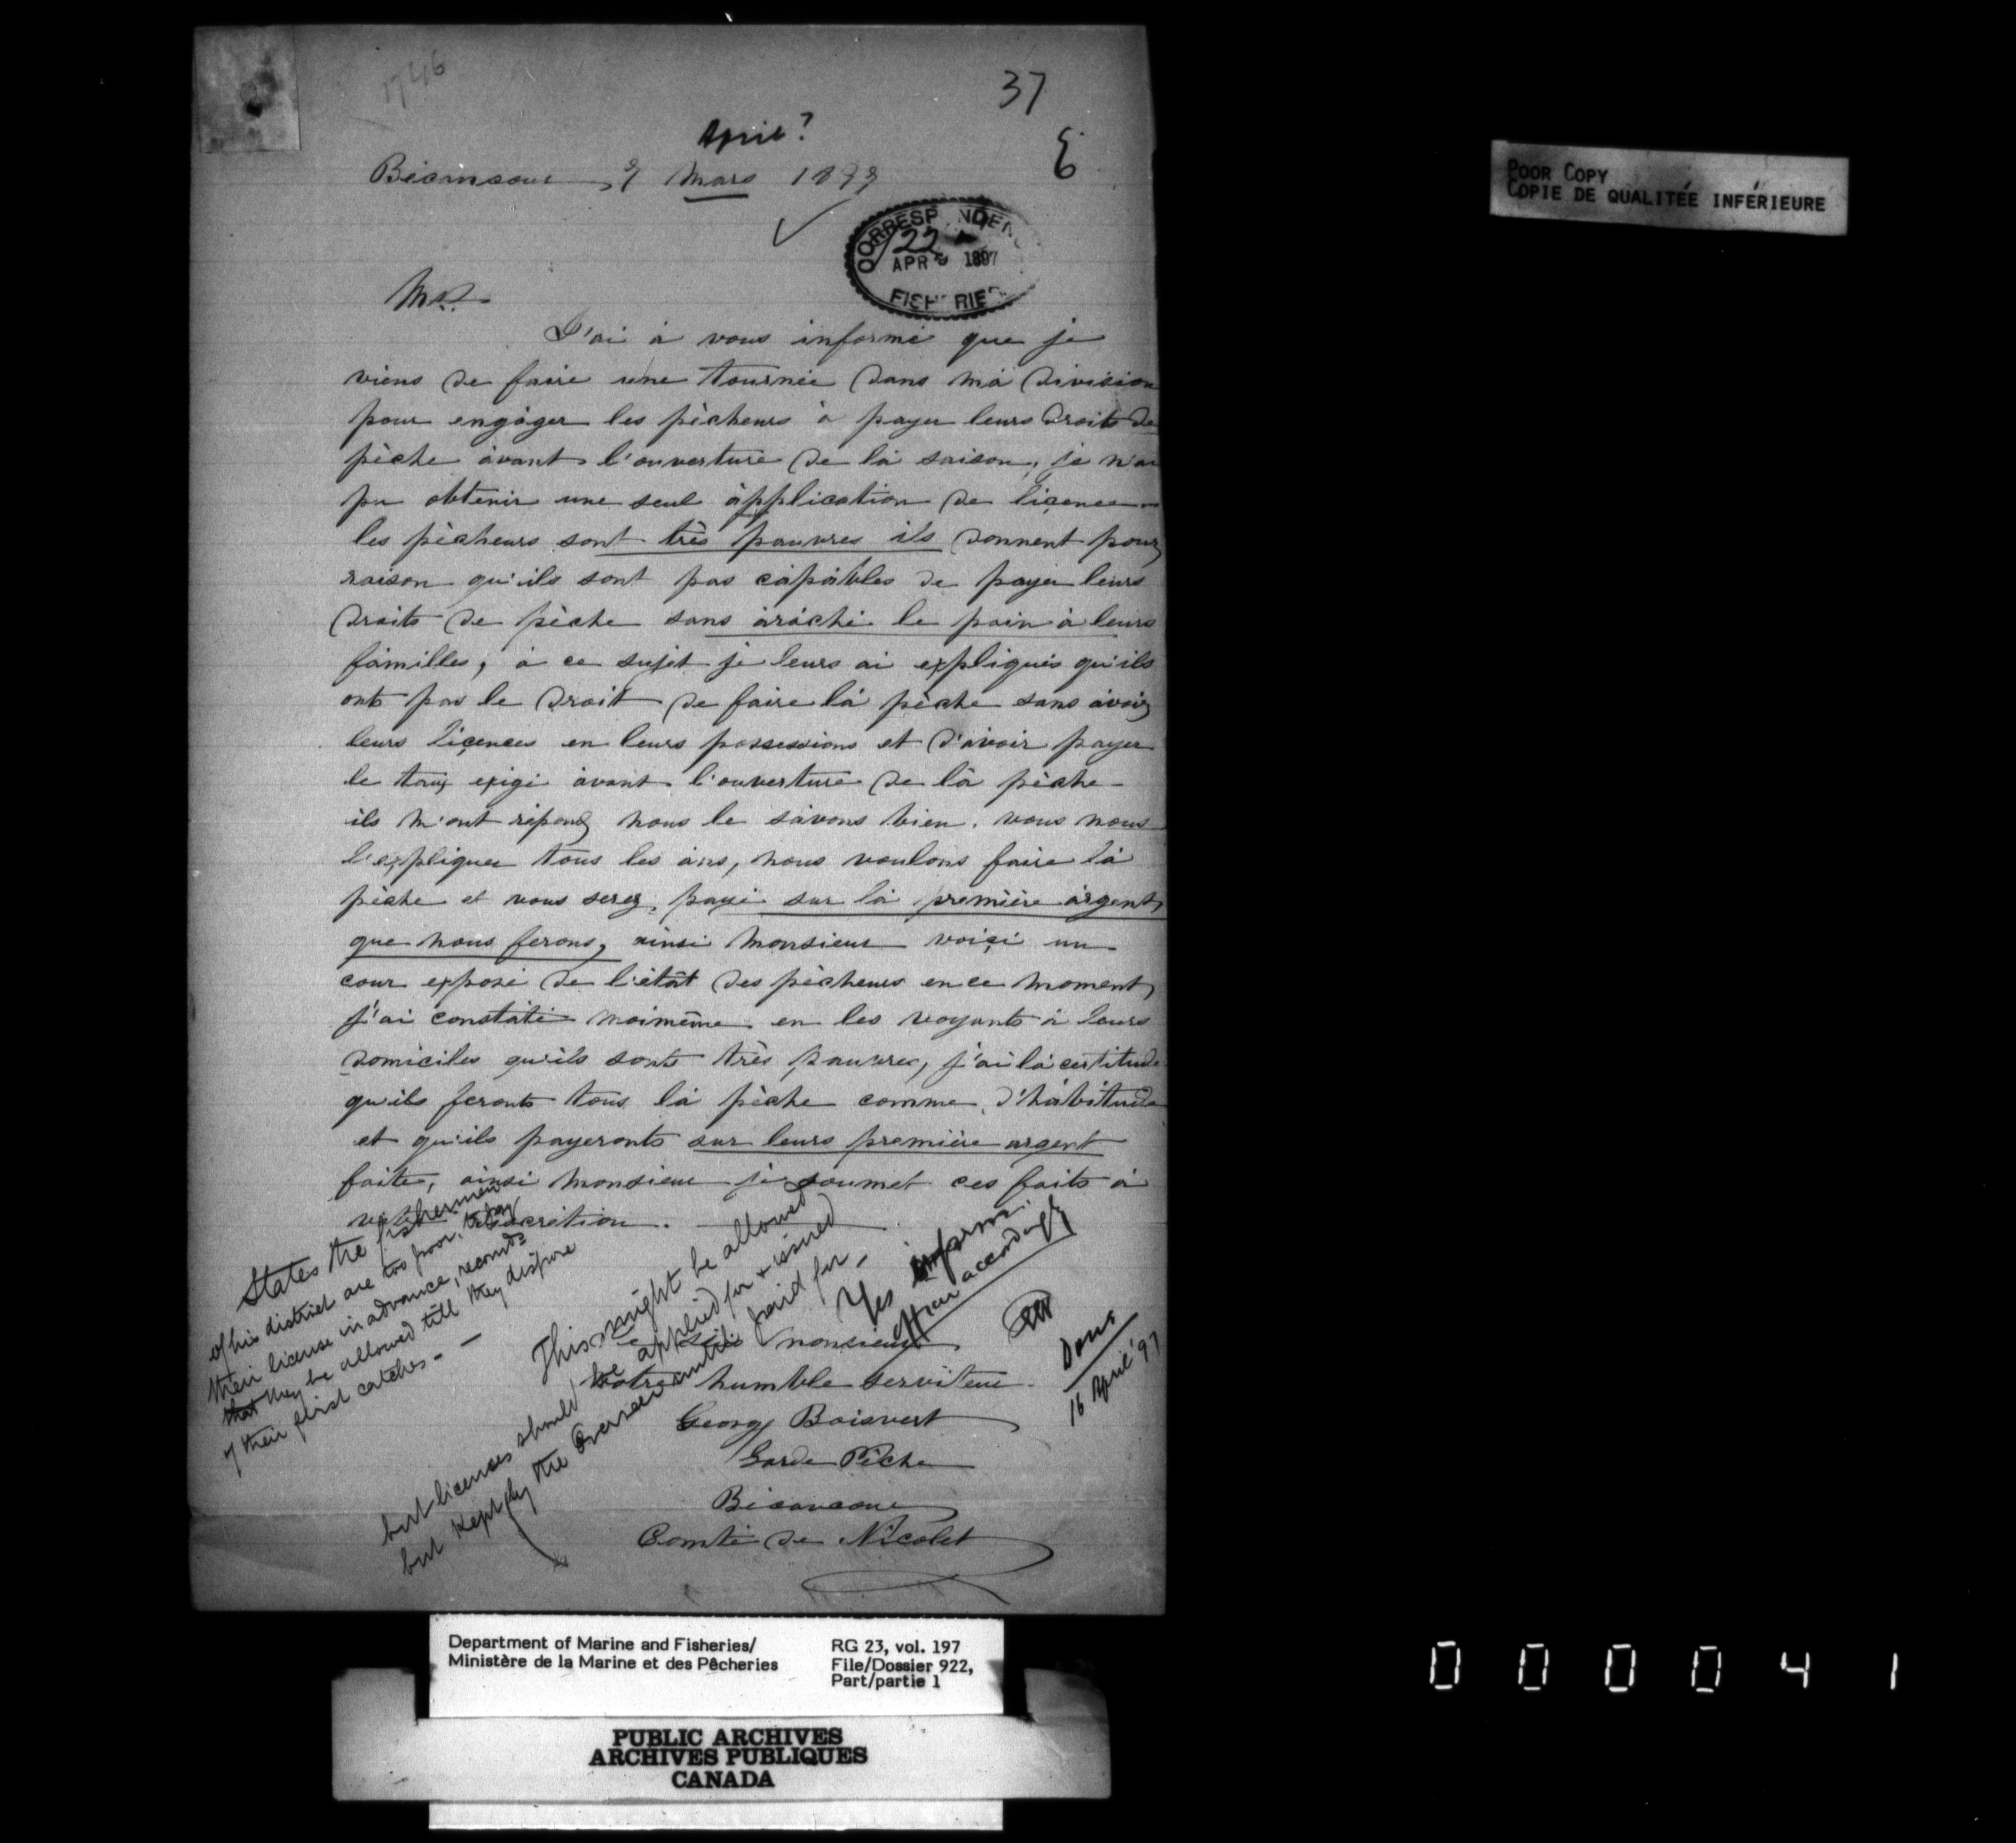 1746
37
April?
E
Bécancour 7 Mars 1897
CORRESPONDENCE
922
APR 9 1897
FISHERIES
Mr.
J'ai à vous informé que je
viens de faire une tournée dans ma division
pour engager les pècheurs à payer leurs droits de
pèche avant l'ouverture de la saison, je n'ai
pu obtenir une seul application de liçence
les pècheurs sont très pauvres ils donnent pour
raison qu'ils sont pas capables de payer leurs
droits de pèche sans araché le pain à leurs
familles, à ce sujet je leurs ai expliqués qu'ils
ont pas le droit de faire la pèche sans avoir
leurs liçences en leurs possessions et d'avoir payer
le taux exigé avant l'ouverture de la pèche
ils m'ont répond nous le savons bien, vous nous
l'expliquer tous les ans, nous voulons faire la
pèche et vous serez payé sur la première argent
que nous ferons, ainsi monsieur voiçi un
cour exposé de l'état des pècheurs en ce moment
j'ai constaté moimême en les voyants à leurs
domiciles qu'ils sonts très pauvres, j'ai la certitude
qu'ils feronts tous la pèche comme d'habitude
et qu'ils payeronts sur leurs première argent
faite, ainsi monsieur je soumet ces faits à
votre discrétion.
States the fishermen
of his district are too poor to pay
their license in advance, recomds
that they be allowed till they dispose
of their first catches -
This might be allowed
but licenses should be applied for & issued
but kept by the Overseer until paid for.
Yes inform
accordingly
Done
16 April '97
monsieur
votre humble serviteur
George Boisvert
Garde Pêche
Bécancour
Comté de Nicolet
POOR COPY
COPIE DE QUALITÉE INFÉRIEURE
Department of Marine and Fisheries/
Ministère de la Marine et des Pêcheries
RG 23, vol. 197
File/Dossier 922,
Part/partie 1
PUBLIC ARCHIVES
ARCHIVES PUBLIQUES
CANADA
000041